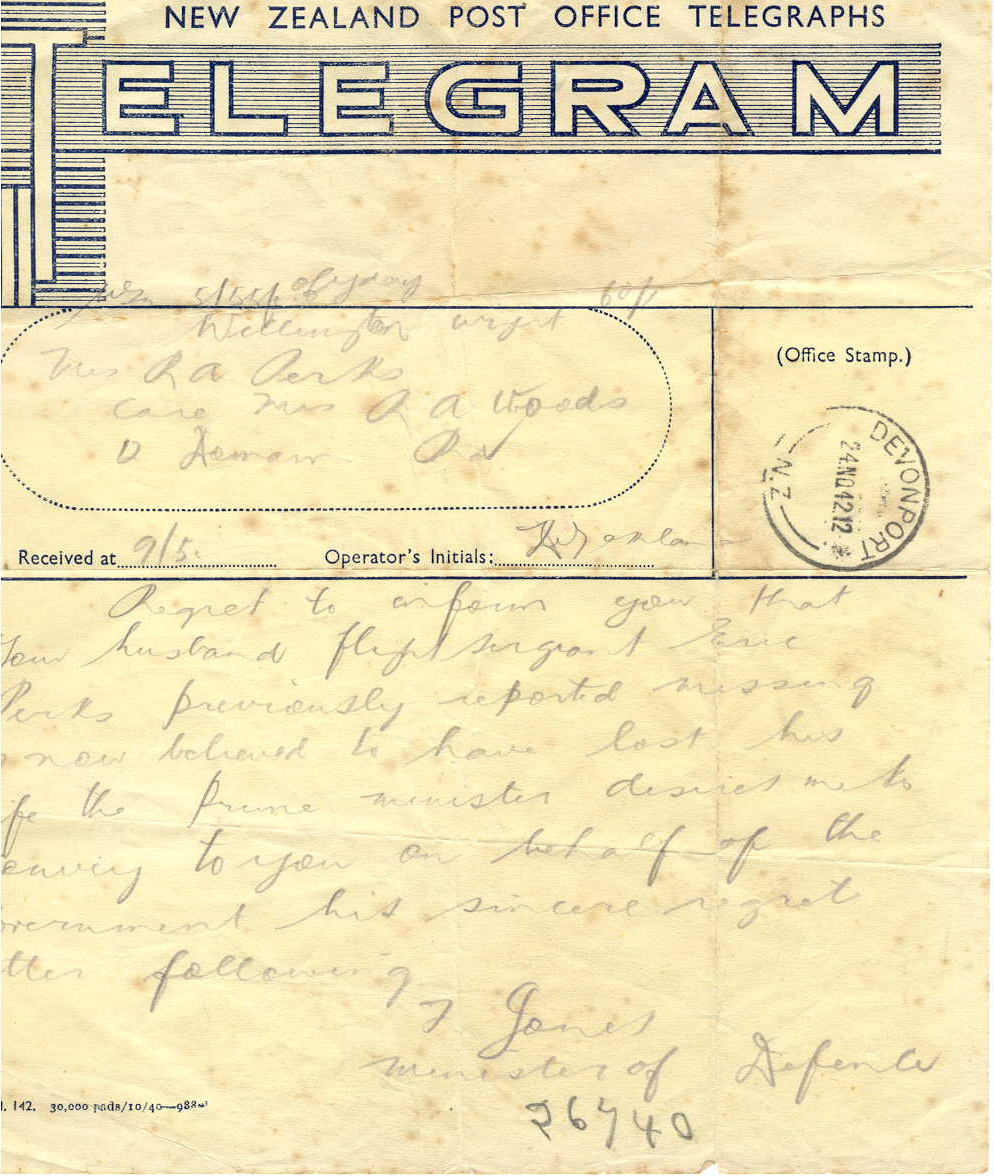 NEW ZEALAND POST OFFICE TELEGRAPHS
TELEGRAM
Wellington urgent
Mrs R A Perks
care Mrs R A Woods
Rd
(Office Stamp.)
DEVONPORT
24 NO 42 12
N.Z.
Received at 9/5.
Operator's Initials:
Regret to inform you that
your husband flight sergeant Eric
Perks previously reported missing
now believed to have lost his
fe the Prime minister desires me to
onvey to you on behalf of the
overnment his sincere regret
tter following
F Jones
Minister of Defence
142. 30,000 pads/10/40—988
26740